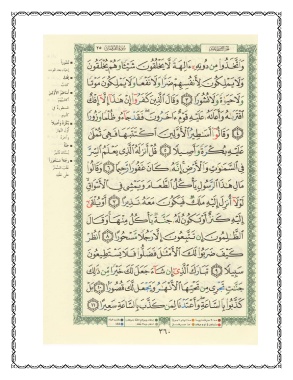 وَٱتَّخَذُوا۟ مِن دُونِهِۦٓ ءَالِهَةً لَّا يَخْلُقُونَ شَيْـًٔا وَهُمْ يُخْلَقُونَ
وَلَا يَمْلِكُونَ لِأَنفُسِهِمْ ضَرًّا وَلَا نَفْعًا وَلَا يَمْلِكُونَ مَوْتًا
وَلَا حَيَوٰةً وَلَا نُشُورًا ٣ وَقَالَ ٱلَّذِينَ كَفَرُوٓا۟ إِنْ هَٰذَآ إِلَّآ إِفْكٌ
ٱفْتَرَىٰهُ وَأَعَانَهُۥ عَلَيْهِ قَوْمٌ ءَاخَرُونَ فَقَدْ جَآءُو ظُلْمًا وَزُورًا
٤ وَقَالُوٓا۟ أَسَٰطِيرُ ٱلْأَوَّلِينَ ٱكْتَتَبَهَا فَهِىَ تُمْلَىٰ
عَلَيْهِ بُكْرَةً وَأَصِيلًا ٥ قُلْ أَنزَلَهُ ٱلَّذِى يَعْلَمُ ٱلسِّرَّ
فِى ٱلسَّمَٰوَٰتِ وَٱلْأَرْضِ إِنَّهُۥ كَانَ غَفُورًا رَّحِيمًا ٦ وَقَالُوا۟
مَالِ هَٰذَا ٱلرَّسُولِ يَأْكُلُ ٱلطَّعَامَ وَيَمْشِى فِى ٱلْأَسْوَاقِ
لَوْلَآ أُنزِلَ إِلَيْهِ مَلَكٌ فَيَكُونَ مَعَهُۥ نَذِيرًا ٧ أَوْ يُلْقَىٰٓ
إِلَيْهِ كَنزٌ أَوْ تَكُونُ لَهُۥ جَنَّةٌ يَأْكُلُ مِنْهَا وَقَالَ
ٱلظَّٰلِمُونَ إِن تَتَّبِعُونَ إِلَّا رَجُلًا مَّسْحُورًا ٨ ٱنظُرْ
كَيْفَ ضَرَبُوا۟ لَكَ ٱلْأَمْثَٰلَ فَضَلُّوا۟ فَلَا يَسْتَطِيعُونَ
سَبِيلًا ٩ تَبَارَكَ ٱلَّذِىٓ إِن شَآءَ جَعَلَ لَكَ خَيْرًا مِّن ذَٰلِكَ
جَنَّٰتٍ تَجْرِى مِن تَحْتِهَا ٱلْأَنْهَٰرُ وَيَجْعَل لَّكَ قُصُورًۢا ١٠ بَلْ
كَذَّبُوا۟ بِٱلسَّاعَةِ وَأَعْتَدْنَا لِمَن كَذَّبَ بِٱلسَّاعَةِ سَعِيرًا ١١
٣٦٠